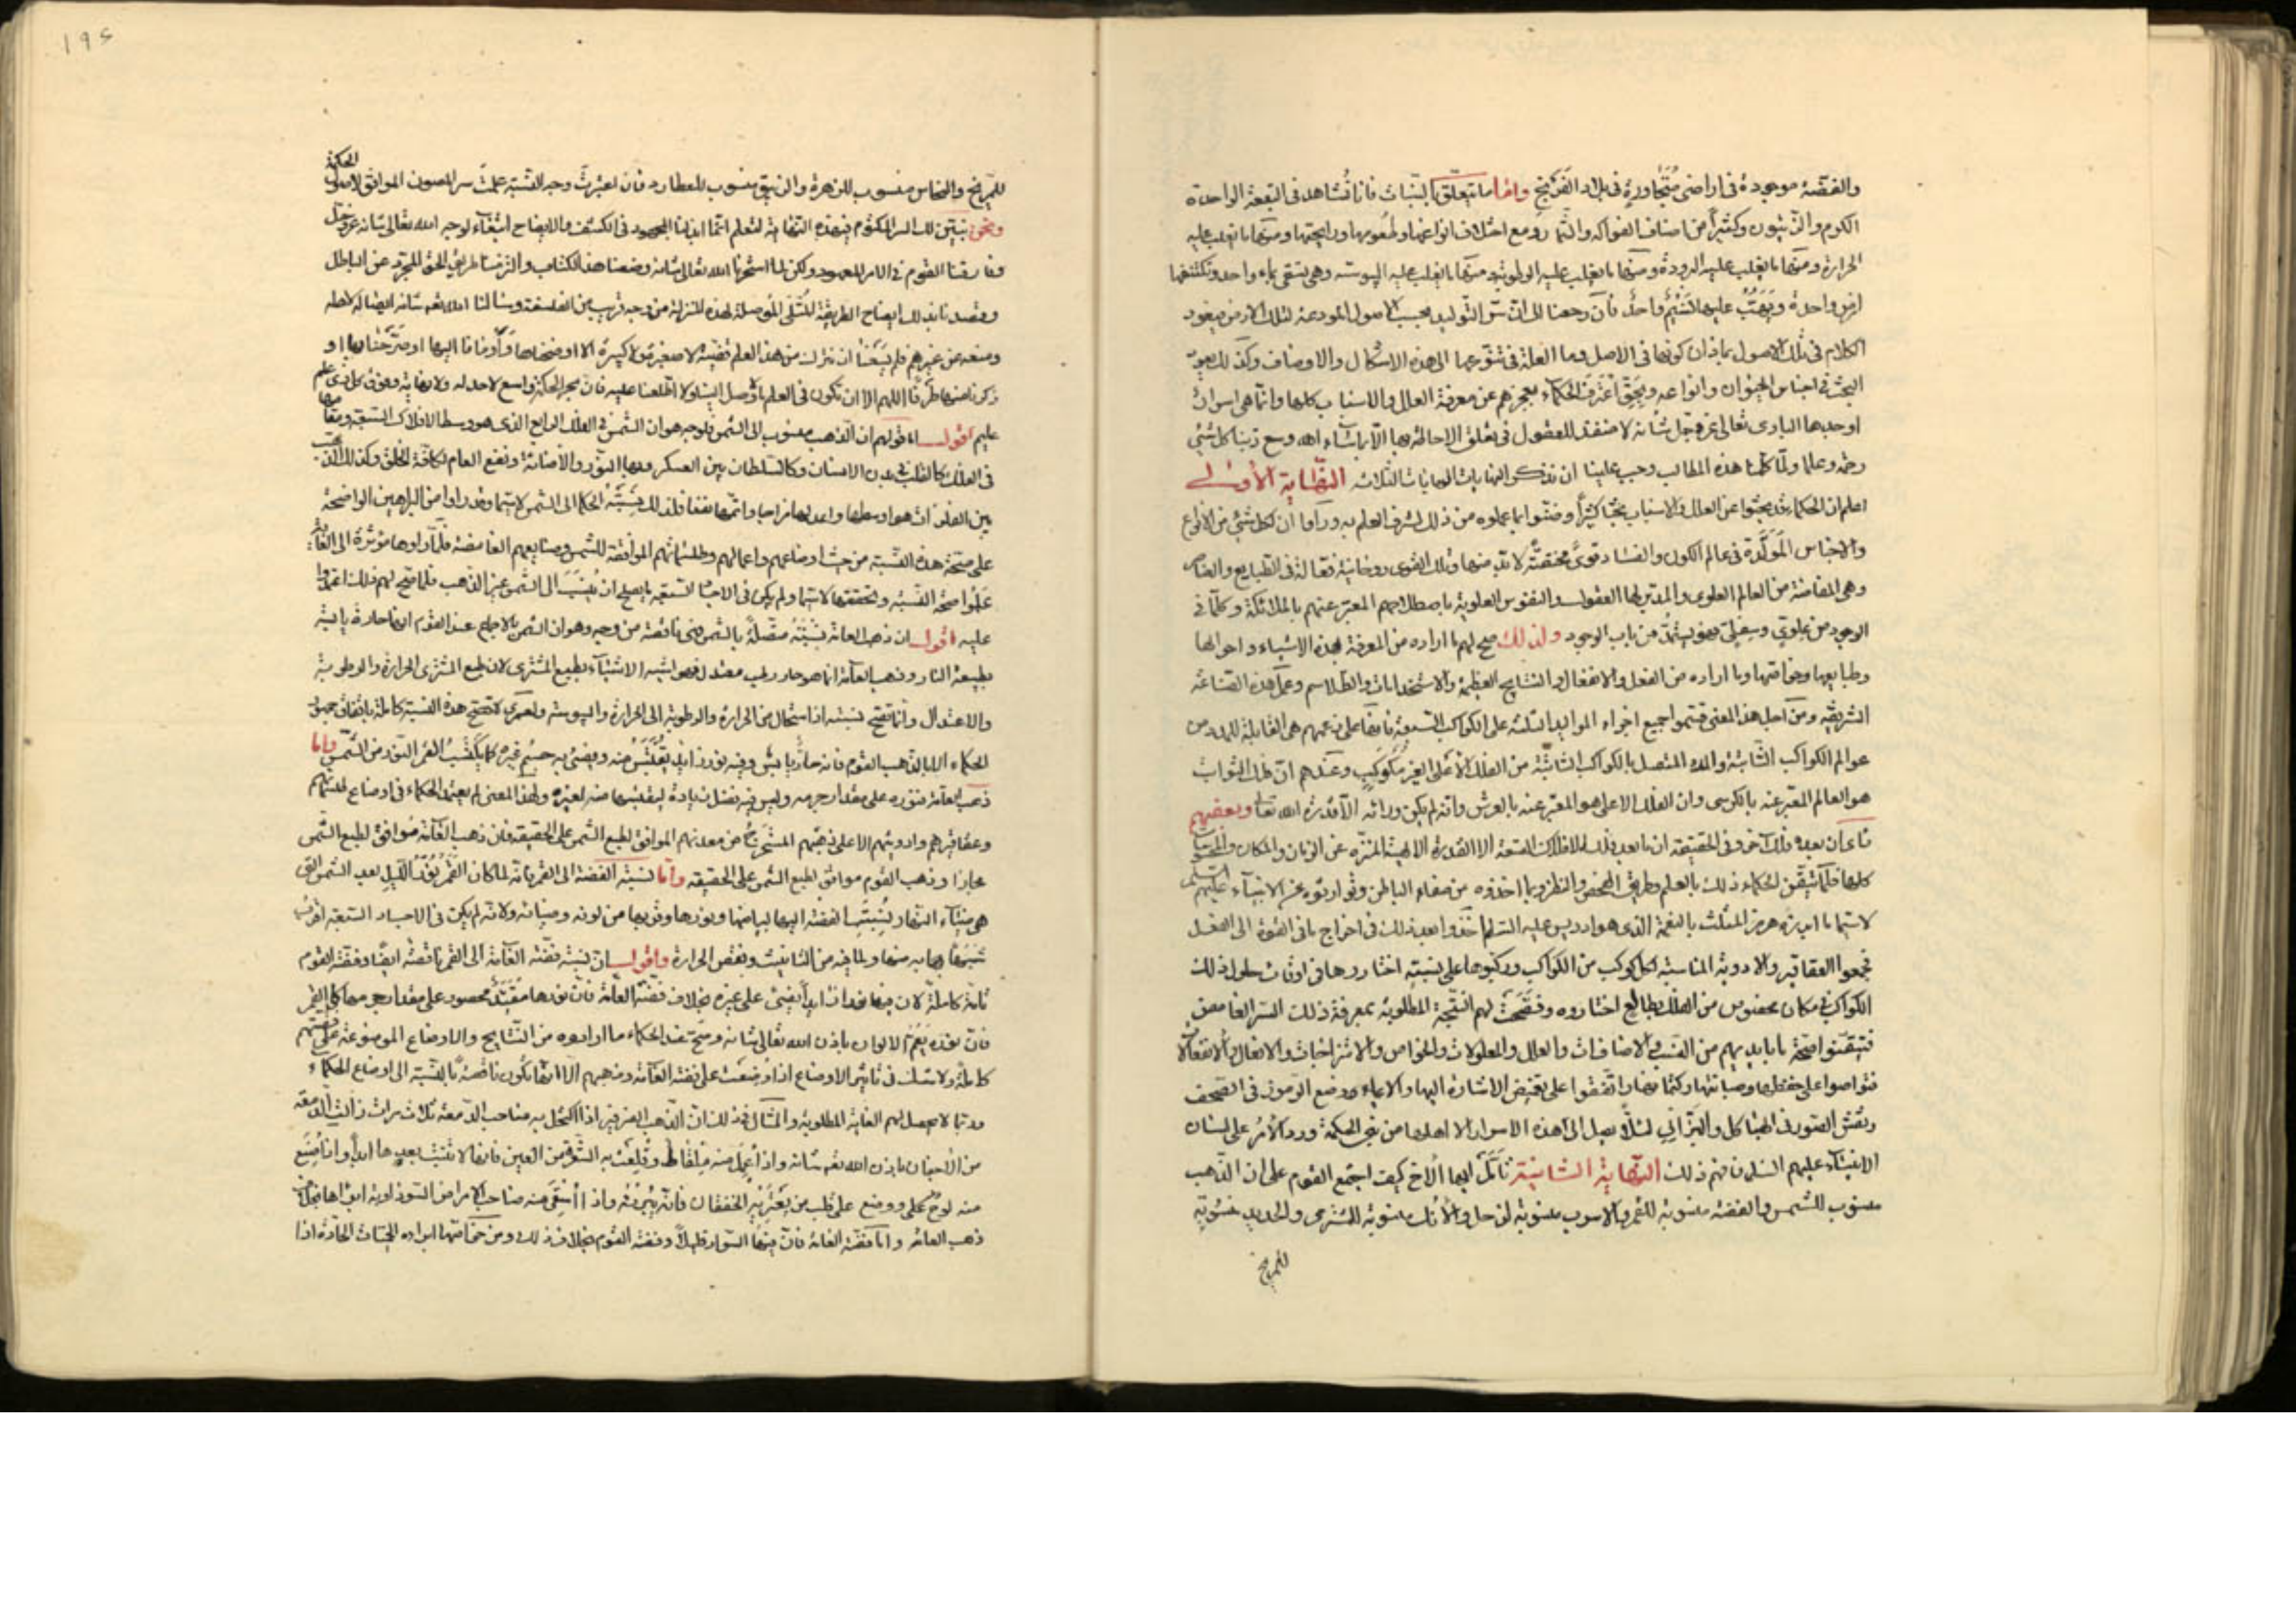 والفضة موجودة فى اراضى مُتَجاورة فى بلاد الفَرَنج وامّا ما يتعلّق بالنّبات فانا نُشاهد فى البقعة الواحدة
الكروم والزيتون وكثيراً من اصناف الفواكه والثمار ومع اختلاف انواعها وطعومها وروايحها ومنها ما يغلب عليه
الحرارة ومنها ما يغلب عليه البرودة ومنها ما يغلب عليه الرطوبة ومنها ما يغلب عليه اليبوسة وهى تسقى بماء واحد وتكتنفها
ارض واحدة ويَهبّ عليها نسيم واحد فان رجعنا الى ان سرّ التوليد بحسب الاصول المودعة لتلك الارض فيعود
الكلام فى تلك الاصول بماذا كونها فى الاصل وما العلة فى تنوّعها الى هذه الاشكال والاوصاف وكذلك يعود
البحث فى اجناس الحيوان وانواعه وبحقّ اعترف الحكماء بعجزهم عن معرفة العلل والاسباب كلها وانما هى اسرار
اوجدها البارى تعالى عزّ وجل شانه لا منفذ للعقول فى تعلق الاحاطة بها الّا بما شاء الله وسع ربّنا كل شئ
رحمة وعلما ولمّا كانت هذه المطالب وجب علينا ان نذكر النهايات الثلاث النّهاية الأولى
اعلم ان الحكماء قد بحثوا عن العلل والاسباب بحثاً كثيراً وضنّوا بما علموه من ذلك لشرف العلم به ورأوا ان لكل شئ من الانواع
والاجناس المولّدة فى عالم الكون والفساد قوىً مختصّة لا بد منها وتلك القوى روحانية فعّالة فى الطبايع والعناصر
وهى المفاضة من العالم العلوى والمدبر لها العقول والنفوس العلوية باصطلاحهم المعبر عنهم بالملائكة وكلّما فى
الوجود من علوىّ وسفلىّ فهو يستمدّ من باب الوجود ولذلك صح لهم ما ارادوه من المعرفة بهذه الاشياء واحوالها
وطبايعها وخواصّها وما ارادوه من الفعل والانفعال والنتايج العظيمة والاستخدامات والطلاسم وعمل هذه الصناعة
الشريفة ومن اجل هذا المعنى قسّموا جميع اجزاء المواليد الثلثة على الكواكب السبعة فانها على زعمهم هى القابلة للمدد من
عوالم الكواكب الثابتة والمدد المتصل بالكواكب الثابتة من الفلك الأعلى الغير مُكَوكب وعندهم ان فلك الثوابت
هو العالم المعبّر عنه بالكرسى وان الفلك الاعلى هو المعبّر عنه بالعرش وانه لم يكن ورائه الّا قدرة الله تعالى وبعضهم
كلها فلمّا تيقّن الحكماء ذلك بالعلم وطريق الفحص والنظر وبما اخذوه من صفاء الباطن وتوارثوه عن الانبياء عليهم السلام
لاسيما ما ابرزه هرمز المثلّث بالنعمة الذى هو ادريس عليه السّلم اخذوا بعد ذلك فى اخراج ما فى القوة الى الفعل
فجمعوا العقاقير والادوية المناسبة لكل كوكب من الكواكب وركبوها على نسبةٍ اختاروها فى اوقات حلول ذلك
الكوكب فى مكان مخصوص من الفلك بطالع اختاروه وفصحّت لهم النتيجة المطلوبة بمعرفة ذلك السرّ الغامض
فتيقّنوا صحّة ما بايديهم من النسب والاضافات والعلل والمعلولات والخواص والامتزاجات والافعال والانفعالات
فتواصوا على حفظها وصيانتها وكتمانها واتّفقوا على تغميض الاشارة اليها والايماء ووضع الرموز فى الصحف
ونقش الصّور فى الهياكل والبَرابى لئلّا يصل الى هذه الاسرار الا اهلها من بنى الحكمة وورد الأمرُ على لسان
الانبياء عليهم السّلم فافهم ذلك النّهاية الثانية تأمّل ايها الأخ كيف اجتمع القوم على ان الذهب
منسوب للشمس والفضة منسوبة للقمر والاسرب منسوبة لزحل والأنك منسوبة للمشترى والحديد منسوبة
للمريخ
١٩٤
الحكمة
للمريخ والنحاس منسوب للزهرة والزيبق منسوب للعطارد فان اعتبرت وجه النسبة علمت سر المصون الموافق لاصول
ونحن نبيّن لك السر المكتوم فى هذه النهاية لتعلم انما ابذلنا المجهود فى الكشف والايضاح ابتغاء لوجه الله تعالى شانه عزّ وجل
وفارقنا القوم فى الامر المعهود ولكن لما استخرنا الله تعالى شانه وضعنا هذا الكتاب والتزمنا طريق الحق المجرّد عن الباطل
وقصدنا بذلك ايضاح الطريقة المُثلى الموصلة لهذه المنزلة من وجه قريب من الفلسفة وسألنا الله تعالى شانه ايصاله لاهله
ومنعه من غيرهم فلم يسعنا ان نترك من هذا العلم قضيّة لا صغيرة ولا كبيرة الا اوضحناها واومانا اليها او صرّحنا بها او
ذكرنا منها طرفًا اللهم الا ان تكون فى العلم ما وصل الينا ولا اطلعنا عليه فان بحر الحكمة واسع لا حد له ولا نهاية وفوق كل ذى علم
عليم اقول اما قولهم ان الذهب منسوب الى الشمس فلوجه هو ان الشمس فى الفلك الرابع الذى هو وسط الافلاك السبعة ومقامها
فى الفلك كالقلب فى بدن الانسان وكالسلطان بين العسكر وبها النور والاضائة ونفع العام لكافة الخلق وكذلك الذهب
بين الفلزات هو اوسطها واعدلها مزاجا واتمّها نفعا فلذلك نسبته الحكماء الى الشمس لاسيما وقد راوا من البراهين الواضحة
على صحّة هذه النسبة من حيث اوضاعهم واعمالهم وطلسماتهم الموافقة للشمس وصنايعهم الغامضة فلمّا راوها مؤثرة الى الغاية
علموا صحّة النسبة وتحققها لاسيما ولم يكن فى الاجساد السبعة ما يصلح ان يُنسب الى الشمس غير الذهب فلما صح لهم ذلك اعتمدوا
عليه اقول ان ذهب العامة نسبته متّصلةً بالشمس وهى ناقصة من وجه وهو ان الشمس بالاجماع عند القوم انها حارة يابسة
بطبيعة النار وذهب العامة انما هو حار رطب معتدل فهو اشبه الاشياء بطبع المشترى لان طبع المشترى الحرارة والرطوبة
والاعتدال وانما تصح نسبته اذا استحال من الحرارة والرطوبة الى الحرارة واليبوسة ولعمرى لا تصح هذه النسبة كاملة باتفاق جميع
الحكماء الا بالذهب القوم فانه حارّ يابس وفيه نور زايد يُقتبس منه ويضئ به جسم غيره كما يكتسب القمر النور من الشمس وامّا
ذهب العامة فنوره على مقدار جرمه وليس فيه فضل زيادة ليقتبسها منه لغيره ولهذا المعنى لم يعتبره الحكماء فى اوضاع طلسماتهم
وعقاقيرهم وادويتهم الا على ذهبهم المستخرج من معدنهم الموافق لطبع الشمس على الحقيقة فان ذهب العامّة موافق لطبع الشمس
مجازا وذهب القوم موافق لطبع الشمس على الحقيقة وامّا نسبة الفضة الى القمر فانه لما كان القمر نورُ اللّيل بعد الشمس التى
هى ضياء النهار ونُسِبت الفضة اليها لبياضها ونورها وقربها من لونه وضيائه ولانه لم يكن فى الاجساد السبعة اقرب
شبهًا به منها ولما فيه من التأنيث ونقص الحرارة واقول انّ نسبة فضّة العامّة الى القمر ناقصة ايضًا وفضّة القوم
تامّة كاملة لان فيها نورانيّة ايضًا تضئ على غيره بخلاف فضّة العامّة فان نورها مقيّد محصور على مقدار جرمها كما القمر
فان نوره يَعُمّ الالوان باذن الله تعالى شانه وصحّ عند الحكماء ما ارادوه من النتايج والاوضاع الموضوعة على فضّتهم
كاملة ولا شك فى تاثير الاوضاع اذا وُضعت على فضّة العامّة وذهبهم الّا انها تكون ناقصة بالنسبة الى اوضاع الحكماء
وربّما لا يحصل لهم الغاية المطلوبة والمثال فى ذلك انّ الذهب الصرفين اذا اكتحل به صاحب الدّمعة ثلاث مرات زالت الدمعة
من الأحيان باذن الله تعالى شانه واذا عمل منه ملقاط وقُلعت به الشّعرة من العين فانها لا تنبت بعدها ابداً واذا صُنع
منه لوح مجلى ووضع على قلب من يعتريه الخفقان فانّه يبرئه واذا اُسقى منه صاحب الامراض السوداوية ابراها بخلاف
ذهب العامّة وامّا فضّة العامّة فان فيها السواد قليلاً وفضّة القوم بخلاف ذلك ومن خواصّها ابراد الحميات الحادّة اذا